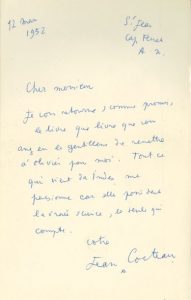 12 mai
1952
St Jean
Cap Ferrat
A M.
Cher monsieur
Je vous retourne, comme promis,
le livre que livre que vous
avez eu la gentillesse de remettre
à Olivier pour moi. Tout ce
qui vient de l'Inde me
passionne car elle possède
la vraie science, la seule qui
compte.
votre
Jean Cocteau